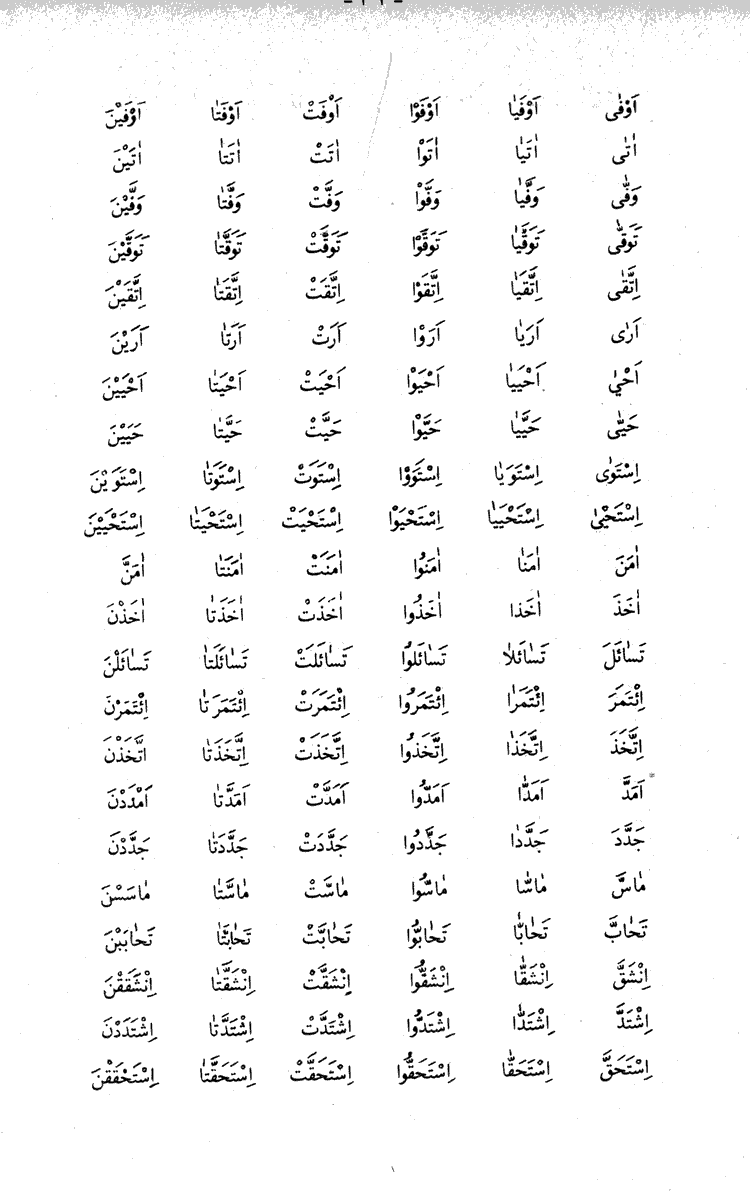 اَوْفٰى اَوْفَيٰا اَوْفَوْا اَوْفَتْ اَوْفَتٰا اَوْفَيْنَ
اٰتٰى اٰتَيٰا اٰتَوْا اٰتَتْ اٰتَتٰا اٰتَيْنَ
وَفّٰى وَفَّيٰا وَفَّوْا وَفَّتْ وَفَّتٰا وَفَّيْنَ
تَوَقّٰى تَوَقَّيٰا تَوَقَّوْا تَوَقَّتْ تَوَقَّتٰا تَوَقَّيْنَ
اِتَّقٰى اِتَّقَيٰا اِتَّقَوْا اِتَّقَتْ اِتَّقَتٰا اِتَّقَيْنَ
اَرٰى اَرَيٰا اَرَوْا اَرَتْ اَرَتٰا اَرَيْنَ
اَحْيٰ اَحْيَيٰا اَحْيَوْا اَحْيَتْ اَحْيَتٰا اَحْيَيْنَ
حَيّٰى حَيَّيٰا حَيَّوْا حَيَّتْ حَيَّتٰا حَيَيْنَ
اِسْتَوٰى اِسْتَوَيٰا اِسْتَوَوْا اِسْتَوَتْ اِسْتَوَتٰا اِسْتَوَيْنَ
اِسْتَحْيٰ اِسْتَحْيَيٰا اِسْتَحْيَوْا اِسْتَحْيَتْ اِسْتَحْيَتٰا اِسْتَحْيَيْنَ
اٰمَنَ اٰمَنٰا اٰمَنُوا اٰمَنَتْ اٰمَنَتٰا اٰمَنَّ
اٰخَذَ اٰخَذا اٰخَذُوا اٰخَذَتْ اٰخَذَتٰا اٰخَذْنَ
تَسٰائَلَ تَسٰائَلاٰ تَسٰائَلُوا تَسٰائَلَتْ تَسٰائَلَتٰا تَسٰائَلْنَ
اِئْتَمَرَ اِئْتَمَرٰا اِئْتَمَرُوا اِئْتَمَرَتْ اِئْتَمَرَتٰا اِئْتَمَرْنَ
اِتَّخَذَ اِتَّخَذٰا اِتَّخَذُوا اِتَّخَذَتْ اِتَّخَذَتٰا اتَّخَذْنَ
اَمَدَّ اَمَدّٰا اَمَدُّوا اَمَدَّتْ اَمَدَّتٰا اَمْدَدْنَ
جَدَّدَ جَدَّدٰا جَدَّدُوا جَدَّدَتْ جَدَّدَتٰا جَدَّدْنَ
مٰاسَّ مٰاسّٰا مٰاسُّوا مٰاسَّتْ مٰاسَّتٰا مٰاسَسْنَ
تَحٰابَّ تَحٰابّٰا تَحٰابُّوا تَحٰابَّتْ تَحٰابَّتٰا تَحٰابَبْنَ
اِنْشَقَّ اِنْشَقّٰا اِنْشَقُّوا اِنْشَقَّتْ اِنْشَقَّتٰا اِنْشَقَقْنَ
اِشْتَدَّ اِشْتَدّٰا اِشْتَدُّوا اِشْتَدَّتْ اِشْتَدَّتٰا اِشْتَدَدْنَ
اِسْتَحَقَّ اِسْتَحَقّٰا اِسْتَحَقُّوا اِسْتَحَقَّتْ اِسْتَحَقَّتٰا اِسْتَحْقَقْنَ